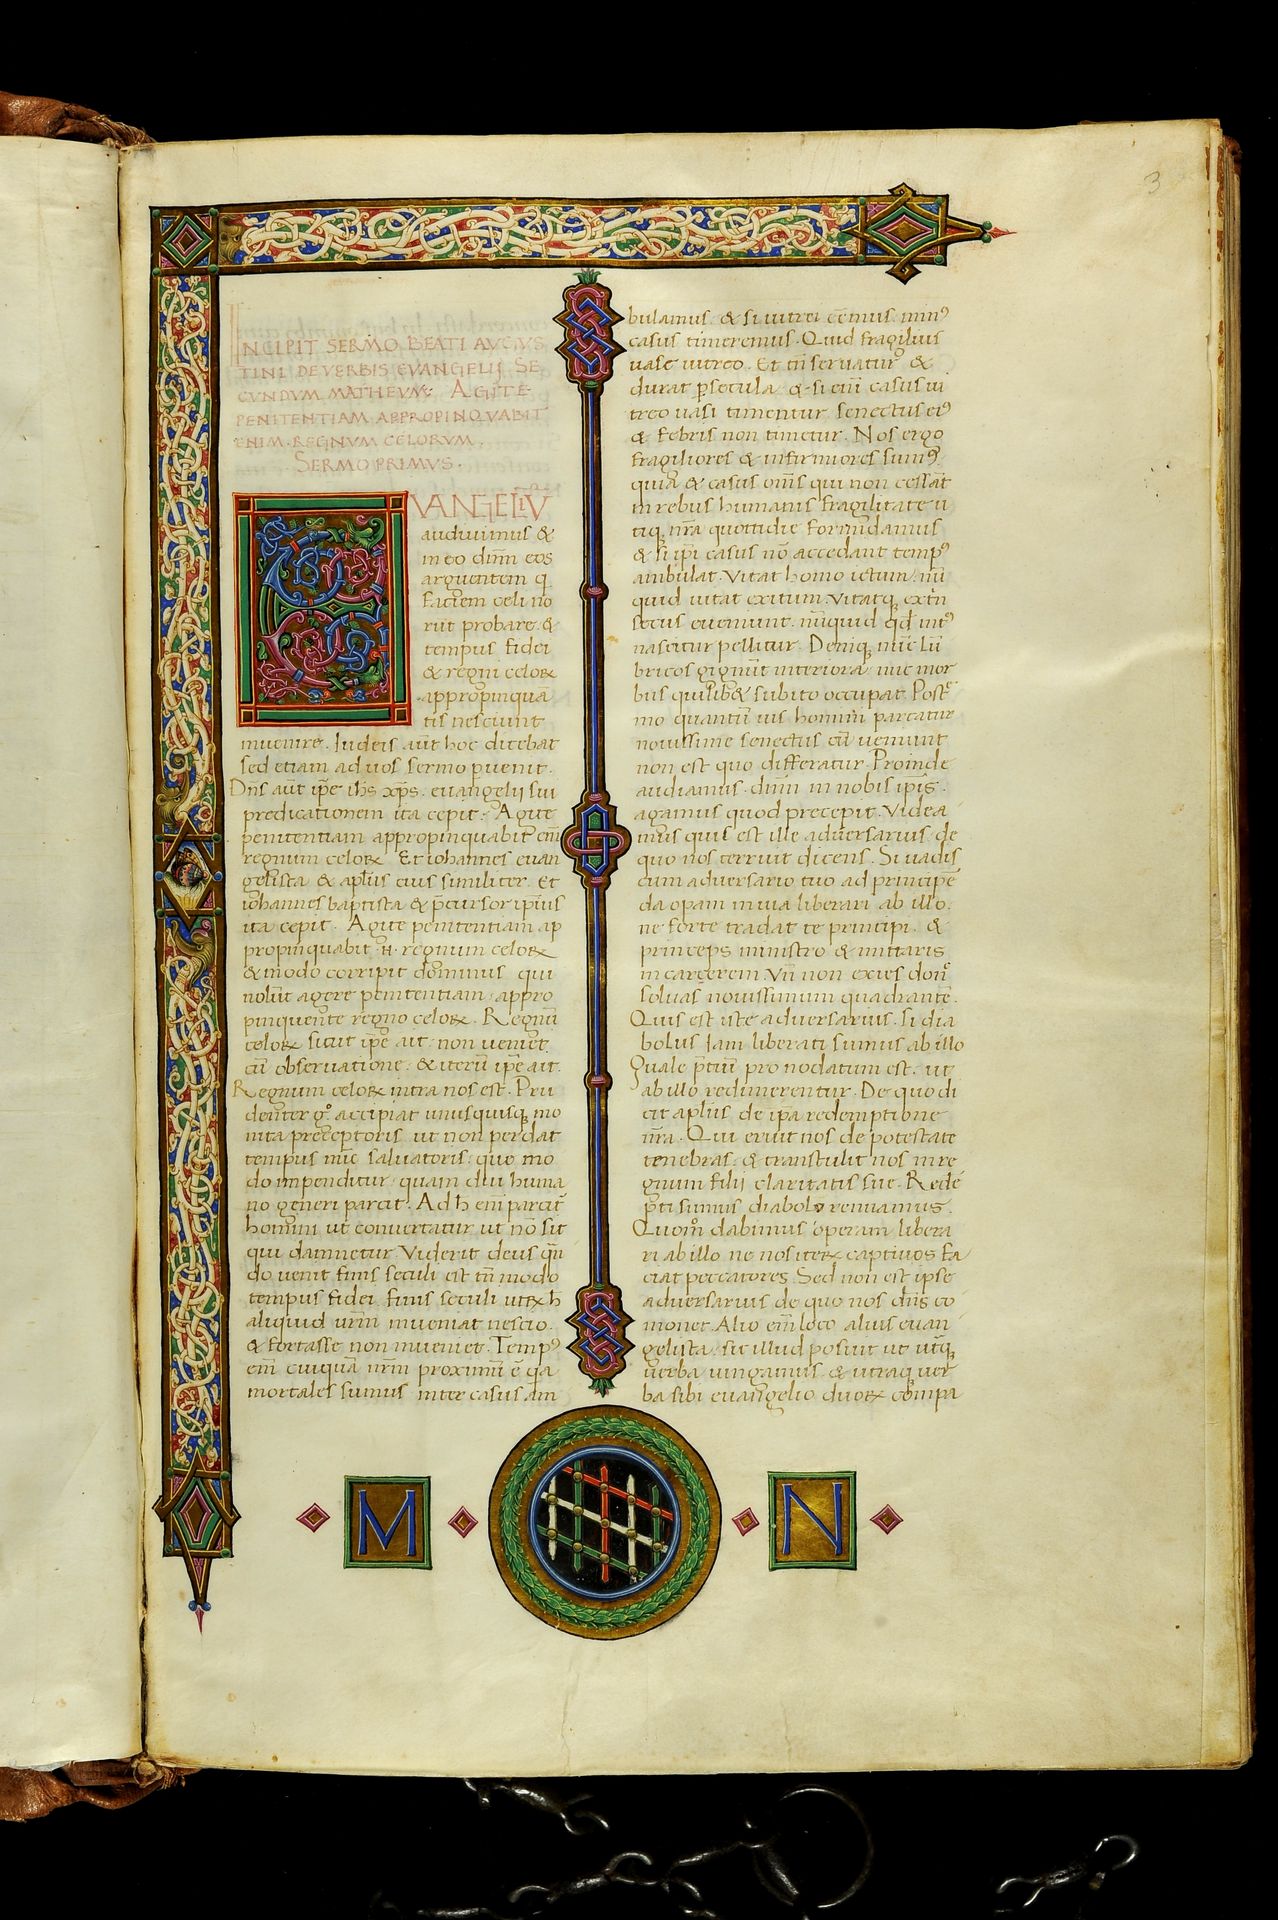 3
INCIPIT SERMO BEATI AUGUS
TINI DE VERBIS EVANGELIJ SE
CUNDUM MATHEUM: AGITE
PENITENTIAM APPROPINQUABIT
ENIM REGNUM CELORUM.
SERMO PRIMUS.
EVANGELIŪ
audivimus &
in eo dnm̄ eos
arguentem q̄
faciem celi no
rūt probare. &
tempus fidei
& regni celoꝝ
appropinquā
tis nesciunt
invenire. Iudeis aut̄ hoc dicebat
sed etiam ad vos sermo pvenit.
Dn̄s aut̄ ip̄e ihs̄ xp̄s. evangelij sui
predicationem ita cepit. Agite
penitentiam appropinquabit em̄
regnum celoꝝ Et iohannes evan
gelista & aplūs eius similiter. Et
iohannes baptista & p̄cursor ipīus
ita cepit. Agite penitentiam ap
propinquabit .n. regnum celoꝝ
& modo corripit dominus qui
nolūt agere penitentiam. appro
pinquente regno celoꝝ. Regnū
celoꝝ sicut ip̄e ait. non veniet
cū observatione. & iterū ip̄e ait.
Regnum celoꝝ intra nos est. Pru
denter gͦ accipiat unusquisq; mo
nita preceptoris ut non perdat
tempus mīe salvatoris. que mo
do impenditur quam diu huma
no generi parcit. Ad h em̄ parcit̄
homini ut convertatur ut nō sit
qui damnetur. Viderit deus qn̄
do venit finis seculi est tn̄ modo
tempus fidei finis seculi utꝝ h
aliquid urm̄ inveniat nescio.
& fortasse non inveniet. Tempꝰ
em̄ cuiquā nrm̄ proximū ē qa
mortales sumus inter casus am
bulamus. & si vitrei eēmus minꝰ
casus timeremus. Quid fragilius
vase vitreo. Et tn̄ servatur &
durat p secula & si em̄ casus vi
treo vasi timentur senectus eiꝰ
& febris non timetur. Nos ergo
fragiliores & infirmiores sumꝰ
quia & casus om̄s qui non cessāt
in rebus humanis fragilitate u
tiq; nrā quottidie formidamus
& si ip̄i casus nō accedant tempꝰ
ambulat. Vitat homo ictum. nū
quid vitat exitum. Vitatq; extn̄
secus eveniunt. nūquid qd̄ intꝰ
nascitur pellitur. Deniq; nūc lū
bricos gignūt interiora nūc mor
bus quilib& subito occupat Post̄
mo quantū uis homini parcatur
novissime senectus cū veniunt
non est quo differatur. Proinde
audiamus dnm̄ in nobis ipīs.
agamus quod precepit. Videa
mus quis est ille adversarius de
quo nos terruit dicens. Si vadis
cum adversario tuo ad principē
da opam in via liberari ab illo.
ne forte tradat te principi. &
princeps ministro & mittaris
in carcerem. Vn̄ non exies don̄
solvas novissimum quadrantē.
Quis est iste adversarius. si dia
bolus Iam liberati sumus ab illo
Quale p̄tiū pro nodatum est. ut
ab illo redimerentur. De quo di
cit aplūs de ipā redemptione
nrā. Qui eruit nos de potestate
tenebras. & transtulit nos in re
gnum filij claritatis sue. Redē
pti sumus diabolo reniamus.
Quom̄ dabimus operam libera
ri ab illo ne nos iteꝝ captivos fa
ciat peccatores. Sed non est ipse
adversarius de quo nos dn̄s co
monet. Alio em̄ loco alius evan
gelista. sic illud posuit ut utq̄
verba iungamus. & utraq; ver
ba sibi evangelio duoꝝ compa
M
N